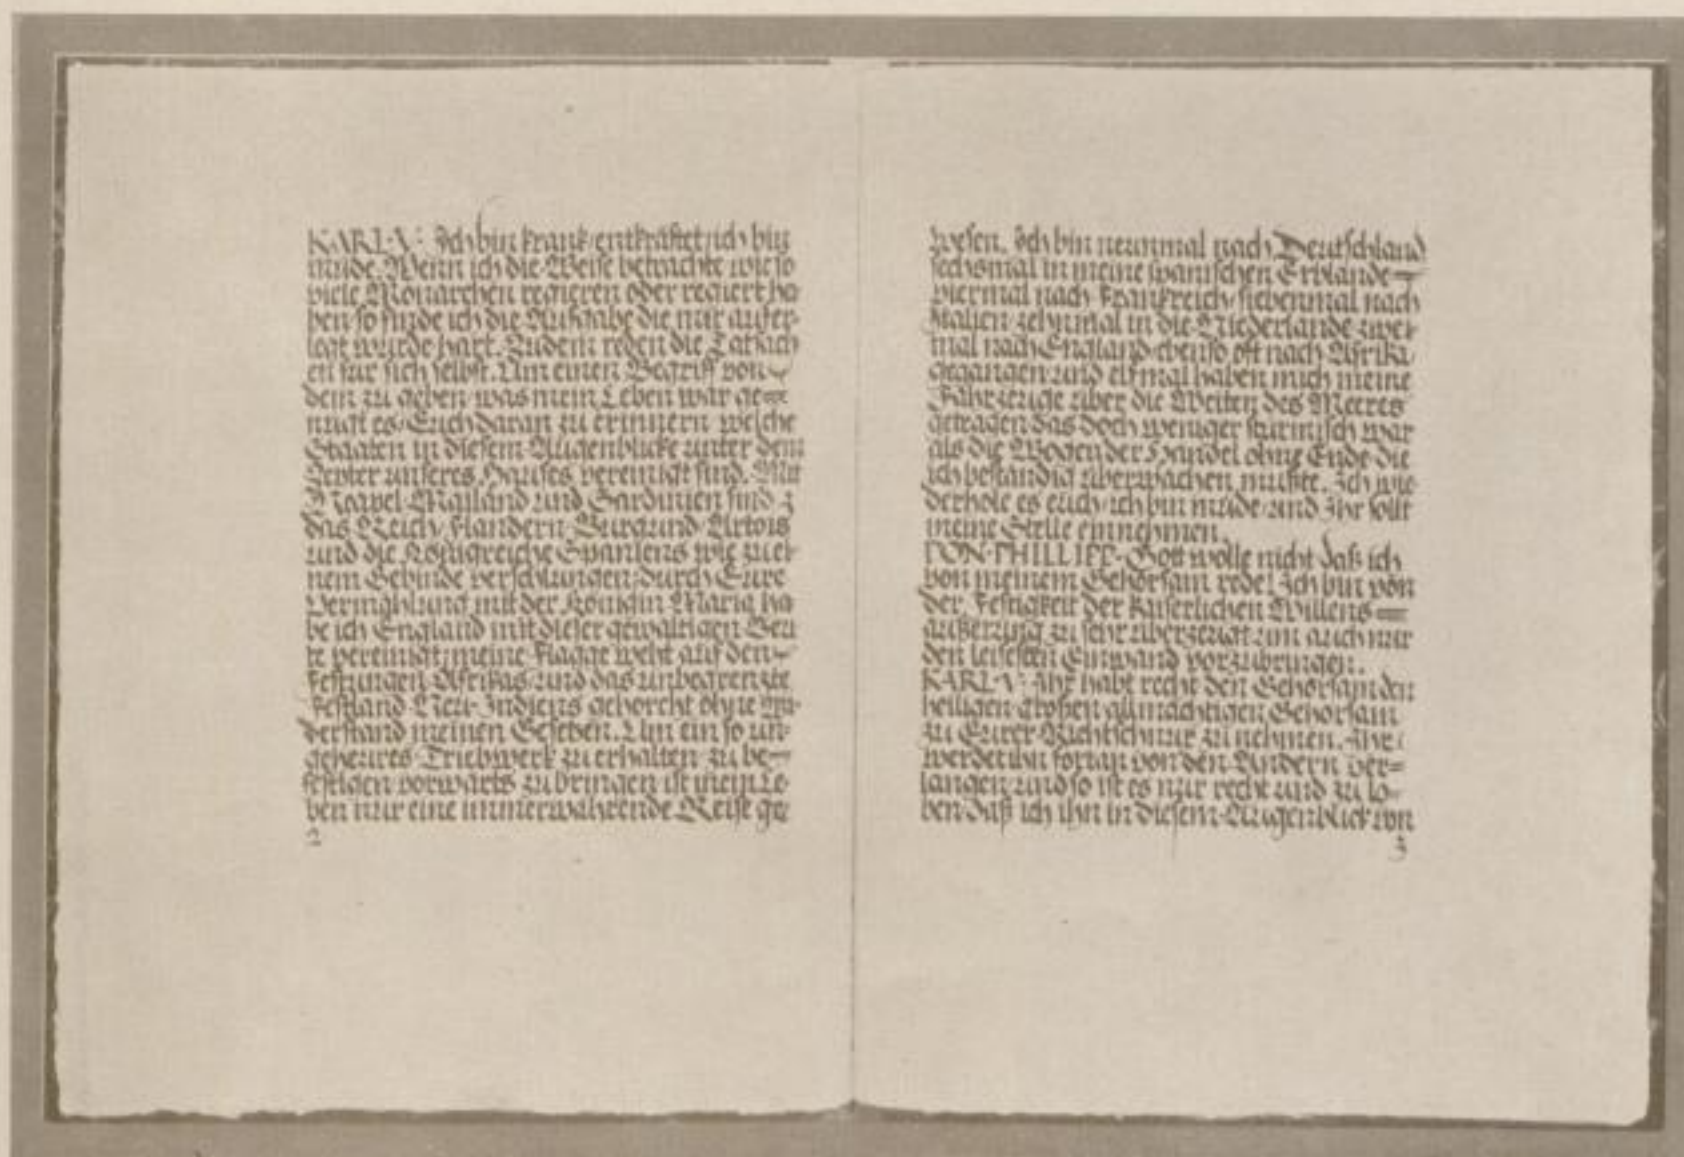 KARL·V· Ich bin krank/entkräftet/ich bin
müde. Wenn ich die Weise betrachte wie so
viele Monarchen regieren oder regiert ha-
ben/so finde ich die Aufgabe die mir aufer-
legt wurde hart. Zudem reden die Tatsach
en für sich selbst. Um einen Begriff von
dem zu geben/was mein Leben war ge=
nügt es/Euch daran zu erinnern welche
Staaten in diesem Augenblicke unter dem
Zepter unseres Hauses vereinigt sind. Mit
Neapel Mailand und Sardinien sind
das Reich/Flandern Burgund Artois
und die Königreiche Spaniens wie zu ei-
nem Gebinde verschlungen/durch Eure
Vermählung mit der Königin Maria ha-
be ich England mit dieser gewaltigen Beu
te vereinigt/meine Flagge weht auf den
Festungen Afrikas/und das unbegrenzte
Festland Neu-Indiens gehorcht ohne Wi-
derstand meinen Gesetzen. Um ein so un-
geheures Triebwerk zu erhalten/zu be-
festigen/vorwärts zu bringen ist mein Le-
ben nur eine immerwährende Reise ge-
2
wesen. Ich bin neunmal nach Deutschland
sechsmal in meine spanischen Erblande
viermal nach Frankreich/siebenmal nach
Italien/zehnmal in die Niederlande zwei-
mal nach England/ebenso oft nach Afrika/
gegangen/und elfmal haben mich meine
Fahrzeuge über die Weiten des Meeres
getragen das doch weniger stürmisch war
als die Wogen der Händel ohne Ende die
ich beständig überwachen mußte. Ich wie
derhole es euch/ich bin müde/und Ihr sollt
meine Stelle einnehmen.
DON·PHILLIPP· Gott wolle nicht daß ich
von meinem Gehorsam rede! Ich bin von
der Festigkeit der kaiserlichen Willens=
äußerung zu sehr überzeugt um auch nur
den leisesten Einwand vorzubringen.
KARL·V· Ihr habt recht den Gehorsam den
heiligen großen allmächtigen Gehorsam
zu Eurer Richtschnur zu nehmen. Ihr
werdet ihn fortan von den Andern ver=
langen/und so ist es nur recht und zu lo-
ben daß ich ihn in diesem Augenblick von
3